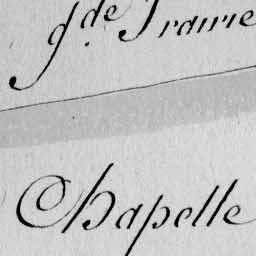 g.de Prairie
Chapelle